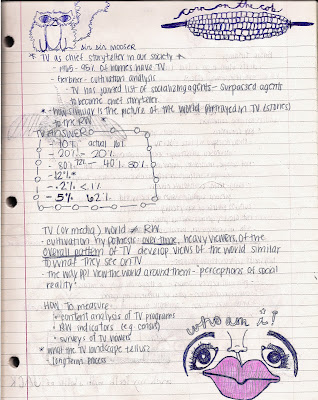 corn on the cob
* TV as chief storyteller in our society *
- 1985 - 95% of homes have TV
- Gerbner - cultivation analysis
- TV has joined list of socializing agents - surpassed agents
to become chief storyteller
* - how similar is the picture of the world portrayed in TV (stories)
to the RW *
TV ANSWERS
- 10% actual 10%
- 20% - 20%
- 80% 72% - 40% 80%
- 12% *
- .2% < 1%
- 5% 62%
TV (or media) world ≠ RW
- cultivation hypothesis: over time, heavy viewers, of the
overall pattern of TV develop views of the world similar
to what they see on TV
- the way ppl view the world around them - "perceptions of social
reality"
HOW TO measure:
• content analysis of TV programs
• RW indicators (e.g. census)
• surveys of TV viewers
* what the TV landscape tells us?
- long term process
who am i?